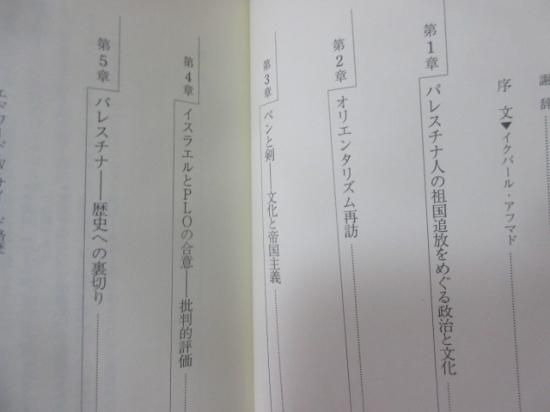 謝辞
序文▼イクバール・アフマド
第1章 パレスチナ人の祖国追放をめぐる政治と文化
第2章 オリエンタリズム再訪
第3章 ペンと剣――文化と帝国主義
第4章 イスラエルとPLOの合意――批判的評価
第5章 パレスチナ――歴史への裏切り
エドワード・W・サイード